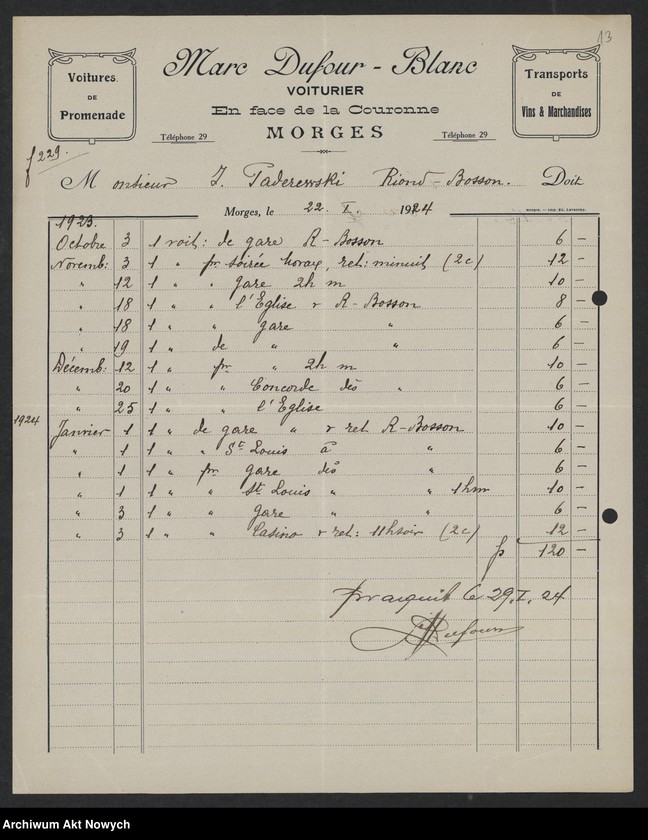 13
Voitures
DE
Promenade
Marc Dufour - Blanc
VOITURIER
En face de la Couronne
MORGES
Téléphone 29
Téléphone 29
Transports
DE
Vins & Marchandises
f 229.
Monsieur I. Paderewski Riond-Bosson. Doit
Morges, le 22. I. 1924
1923.
Octobre 3 1 voit: de gare R-Bosson 6 —
Novemb: 3 1 " pr soirée , ret: minuit (2c) 12 —
" 12 1 " " gare 2h m 10 —
" 18 1 " " l'Eglise r R-Bosson 8 —
" 18 1 " " gare " 6 —
" 19 1 " de " " 6 —
Décemb: 12 1 " pr " 2h m 10 —
" 20 1 " " Concorde dès " 6 —
" 25 1 " " l'Eglise 6 —
1924
Janvier 1 1 " de gare " & ret R-Bosson 10 —
" 1 1 " " St Louis à " 6 —
" 1 1 " pr gare dès " 6 —
" 1 1 " " St Louis " " 1hm 10 —
" 3 1 " " gare " " 6 —
" 3 1 " " Casino & ret: 11hsoir (2c) 12 —
fr 120 —
pr acquit le 29. I. 24
Dufour
Archiwum Akt Nowych